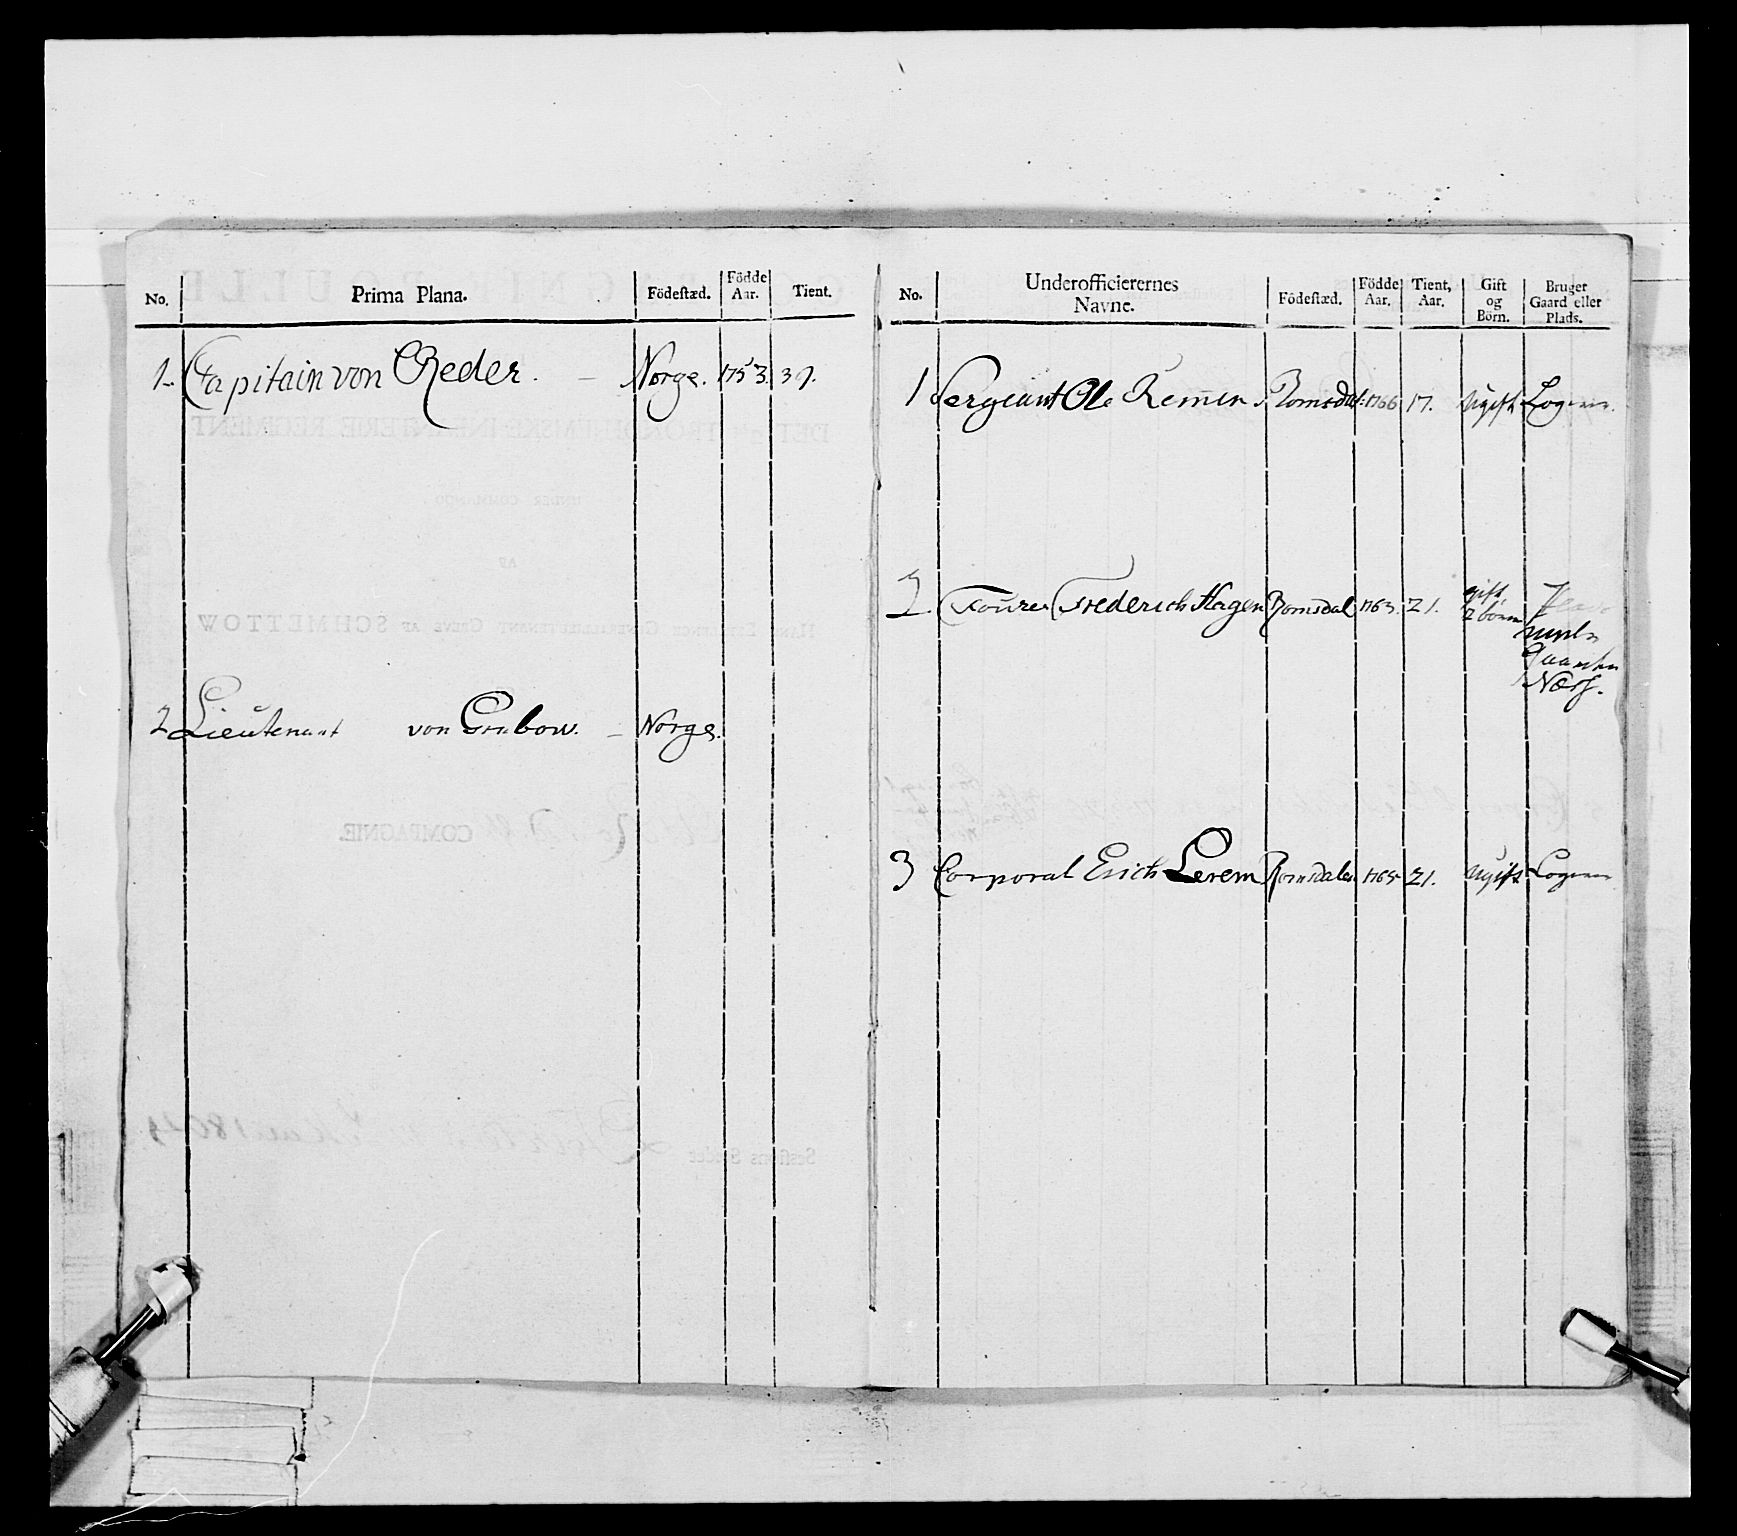 No. Prima Plana. Födestæd. Födde Aar. Tient.
1. Capitain von Reder. – Norge. 1753. 37.
2 Lieutenant von Grabow. – Norge.
No. Underofficierernes Navne. Födestæd. Födde Aar. Tient, Aar. Gift og Börn. Bruger Gaard eller Plads.
1 Sergiant Ole Remen Romsdal. 1766 17. Ugift Logerer.
2 Fourer Frederich Hagen Romsdal 1763. 21. gift, 2 börn
Næss.
3 Corporal Erich Lerem Romsdalen 1765 21. Ugift Logerer